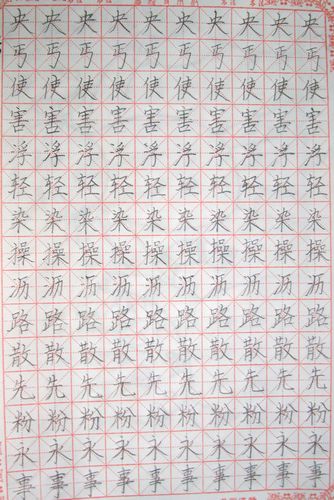 央央央央央央央央央央
丐丐丐丐丐丐丐丐丐丐
使使使使使使使使使使
害害害害害害害害害害
浮浮浮浮浮浮浮浮浮浮
轻轻轻轻轻轻轻轻轻轻
染染染染染染染染染染
操操操操操操操操操操
沥沥沥沥沥沥沥沥沥沥
路路路路路路路路路路
散散散散散散散散散散
先先先先先先先先先先
粉粉粉粉粉粉粉粉粉粉
永永永永永永永永永永
事事事事事事事事事事